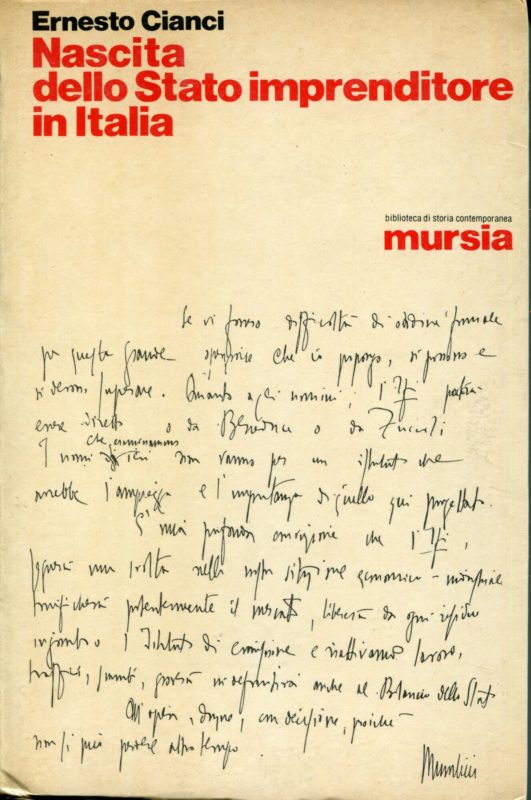 Ernesto Cianci
Nascita
dello Stato imprenditore
in Italia
biblioteca di storia contemporanea
mursia
Se vi fossero difficoltà di ordine formale
per questa grande operazione che io propongo, si possono e
si devono superare. Quanto agli uomini, l'Ifi potrà
essere diretto o da Beneduce o da
I nomi che non vanno per un istituto che
avrebbe l'ampiezza e l'importanza di quello qui progettato.
È mia profonda convinzione che l'Ifi,
segnerà una svolta nella nostra situazione economico-industriale
tonificherà potentemente il mercato, libererà da ogni residuo
ingombro l'Istituto di emissione e riattivando lavoro,
traffici, scambi, gioverà in definitiva anche al Bilancio dello Stato
All'opera, dunque, con decisione, poiché
non si può perdere altro tempo.
Mussolini